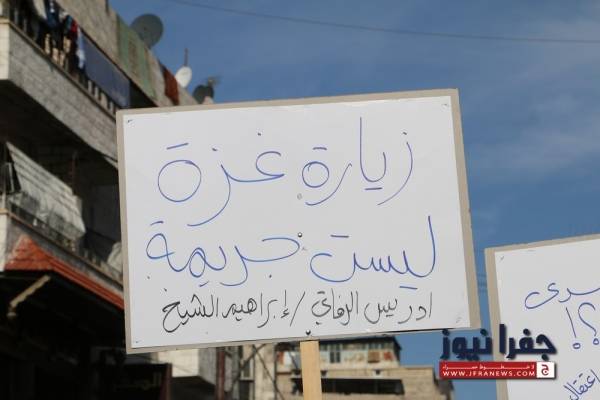 زيارة غزة
ليست جريمة
ادريس الرفاتي / إبراهيم الشيخ
؟!
اعتقال
جفرا نيوز
WWW.JFRANEWS.COM